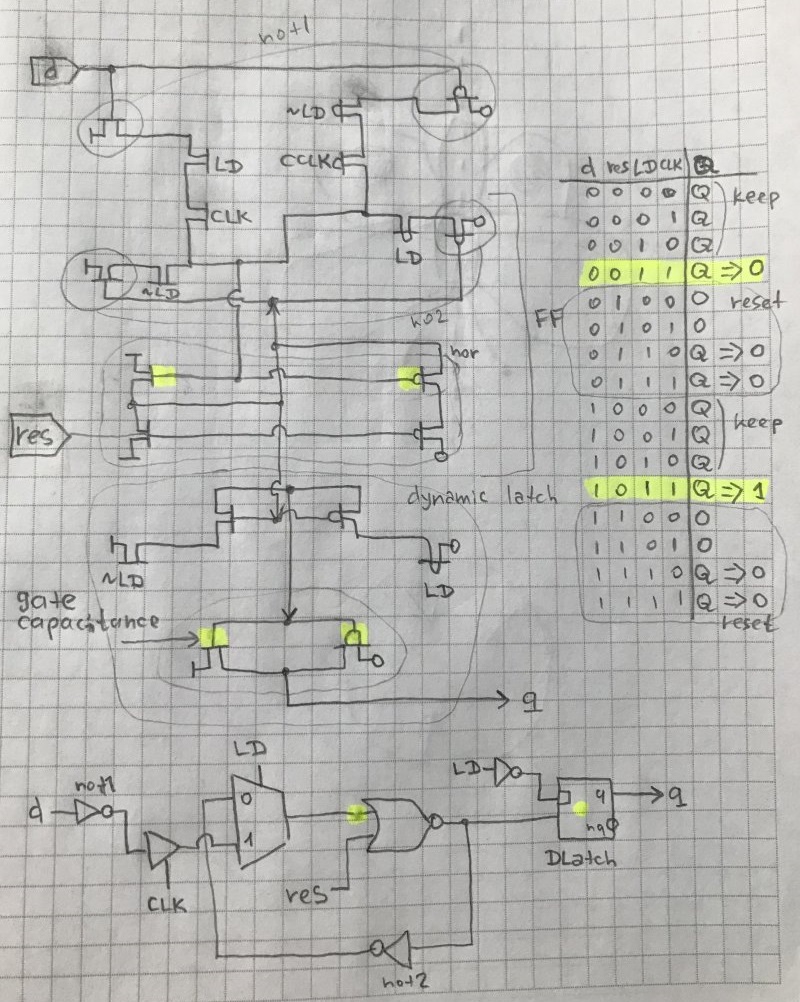 not1
d
~LD
CCLK
LD
CLK
~LD
LD
no2
FF
nor
res
dynamic latch
~LD
LD
gate
capacitance
q
d res LD CLK Q
0 0 0 0 Q keep
0 0 0 1 Q
0 0 1 0 Q
0 0 1 1 Q => 0
0 1 0 0 0 reset
0 1 0 1 0
0 1 1 0 Q => 0
0 1 1 1 Q => 0
1 0 0 0 Q keep
1 0 0 1 Q
1 0 1 0 Q
1 0 1 1 Q => 1
1 1 0 0 0
1 1 0 1 0
1 1 1 0 Q => 0
1 1 1 1 Q => 0
reset
LD
not1
d
0
1
CLK
res
not2
LD
q
nq
DLatch
q